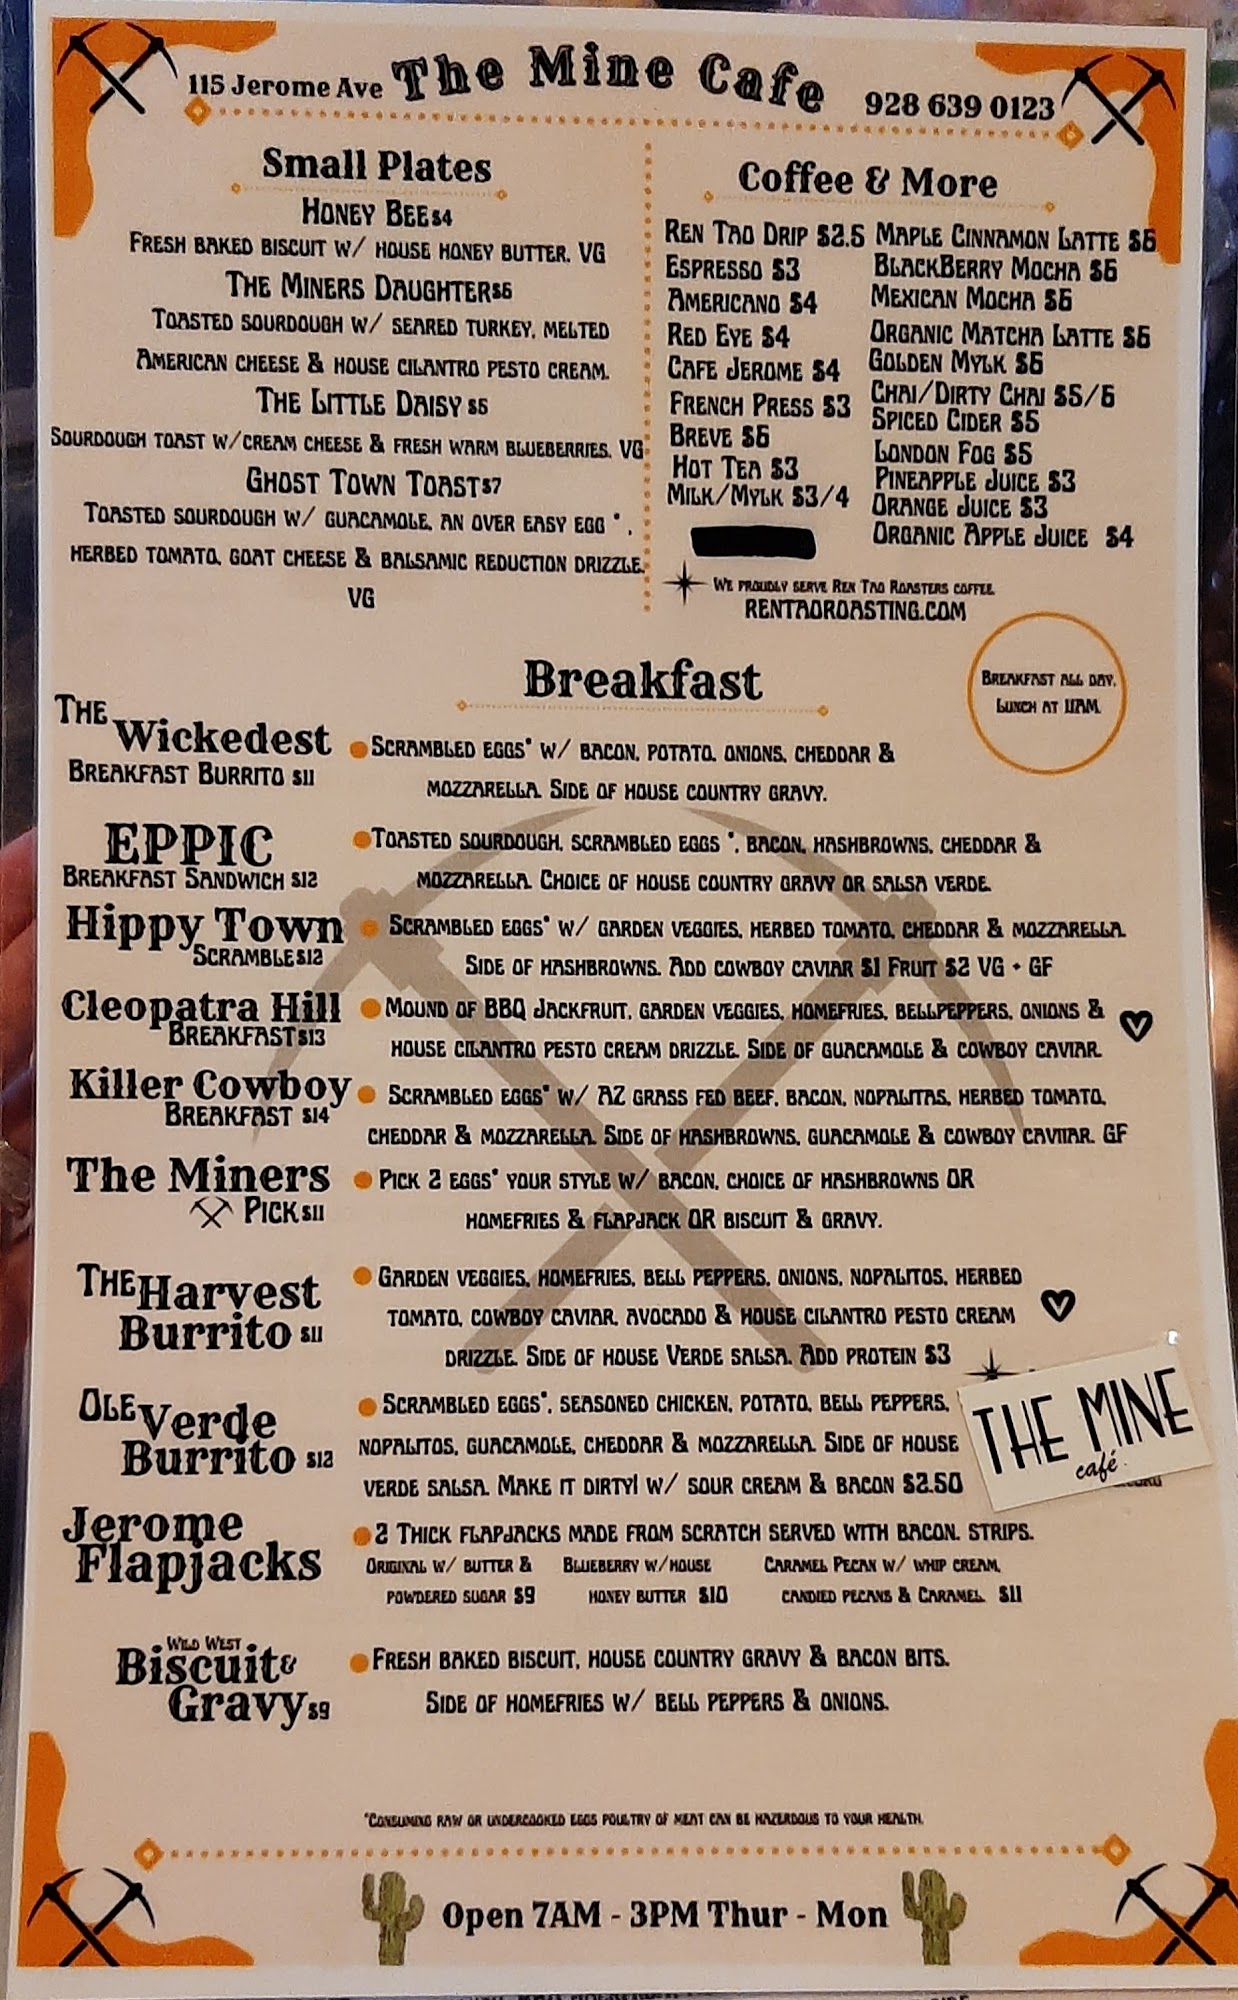 115 Jerome Ave The Mine Cafe 928 639 0123
Small Plates
Honey Bee $4
Fresh baked biscuit w/ house honey butter. VG
The Miners Daughter $6
Toasted sourdough w/ seared turkey, melted
American cheese & house cilantro pesto cream.
The Little Daisy $5
Sourdough toast w/cream cheese & fresh warm blueberries. VG
Ghost Town Toast $7
Toasted sourdough w/ guacamole, an over easy egg *,
herbed tomato, goat cheese & balsamic reduction drizzle.
VG
Coffee & More
Ren Tao Drip $2.5
Espresso $3
Americano $4
Red Eye $4
Cafe Jerome $4
French Press $3
Breve $6
Hot Tea $3
Milk/Mylk $3/4
Maple Cinnamon Latte $6
BlackBerry Mocha $6
Mexican Mocha $6
Organic Matcha Latte $6
Golden Mylk $6
Chai/Dirty Chai $5/6
Spiced Cider $5
London Fog $5
Pineapple Juice $3
Orange Juice $3
Organic Apple Juice $4
We proudly serve Ren Tao Roasters coffee
rentaoroasting.com
Breakfast
Breakfast all day.
Lunch at 11AM.
The Wickedest
Breakfast Burrito $11
Scrambled eggs* w/ bacon, potato, onions, cheddar &
mozzarella. Side of house country gravy.
EPPIC
Breakfast Sandwich $12
Toasted sourdough, scrambled eggs *, bacon, hashbrowns, cheddar &
mozzarella. Choice of house country gravy or salsa verde.
Hippy Town
Scramble $12
Scrambled eggs* w/ garden veggies, herbed tomato, cheddar & mozzarella.
Side of hashbrowns. Add cowboy caviar $1 Fruit $2 VG • GF
Cleopatra Hill
Breakfast $13
Mound of BBQ Jackfruit, garden veggies, homefries, bellpeppers, onions &
house cilantro pesto cream drizzle. Side of guacamole & cowboy caviar.
V
Killer Cowboy
Breakfast $14
Scrambled eggs* w/ AZ grass fed beef, bacon, nopalitas, herbed tomato,
cheddar & mozzarella. Side of hashbrowns, guacamole & cowboy caviiar. GF
The Miners
Pick $11
Pick 2 eggs* your style w/ bacon, choice of hashbrowns OR
homefries & flapjack OR biscuit & gravy.
The Harvest
Burrito $11
Garden veggies, homefries, bell peppers, onions, nopalitos, herbed
tomato, cowboy caviar, avocado & house cilantro pesto cream
drizzle. Side of house Verde salsa. Add protein $3
V
Ole Verde
Burrito $12
Scrambled eggs*, seasoned chicken, potato, bell peppers,
nopalitos, guacamole, cheddar & mozzarella. Side of house
verde salsa. Make it dirty! w/ sour cream & bacon $2.50
THE MINE
café
Jerome
Flapjacks
2 Thick flapjacks made from scratch served with bacon. strips.
Original w/ butter &
powdered sugar $9
Blueberry w/house
honey butter $10
Caramel Pecan w/ whip cream,
candied pecans & Caramel $11
Wild West
Biscuit &
Gravy $9
Fresh baked biscuit, house country gravy & bacon bits.
Side of homefries w/ bell peppers & onions.
*Consuming raw or undercooked eggs poultry of meat can be hazerdous to your health.
Open 7AM - 3PM Thur - Mon